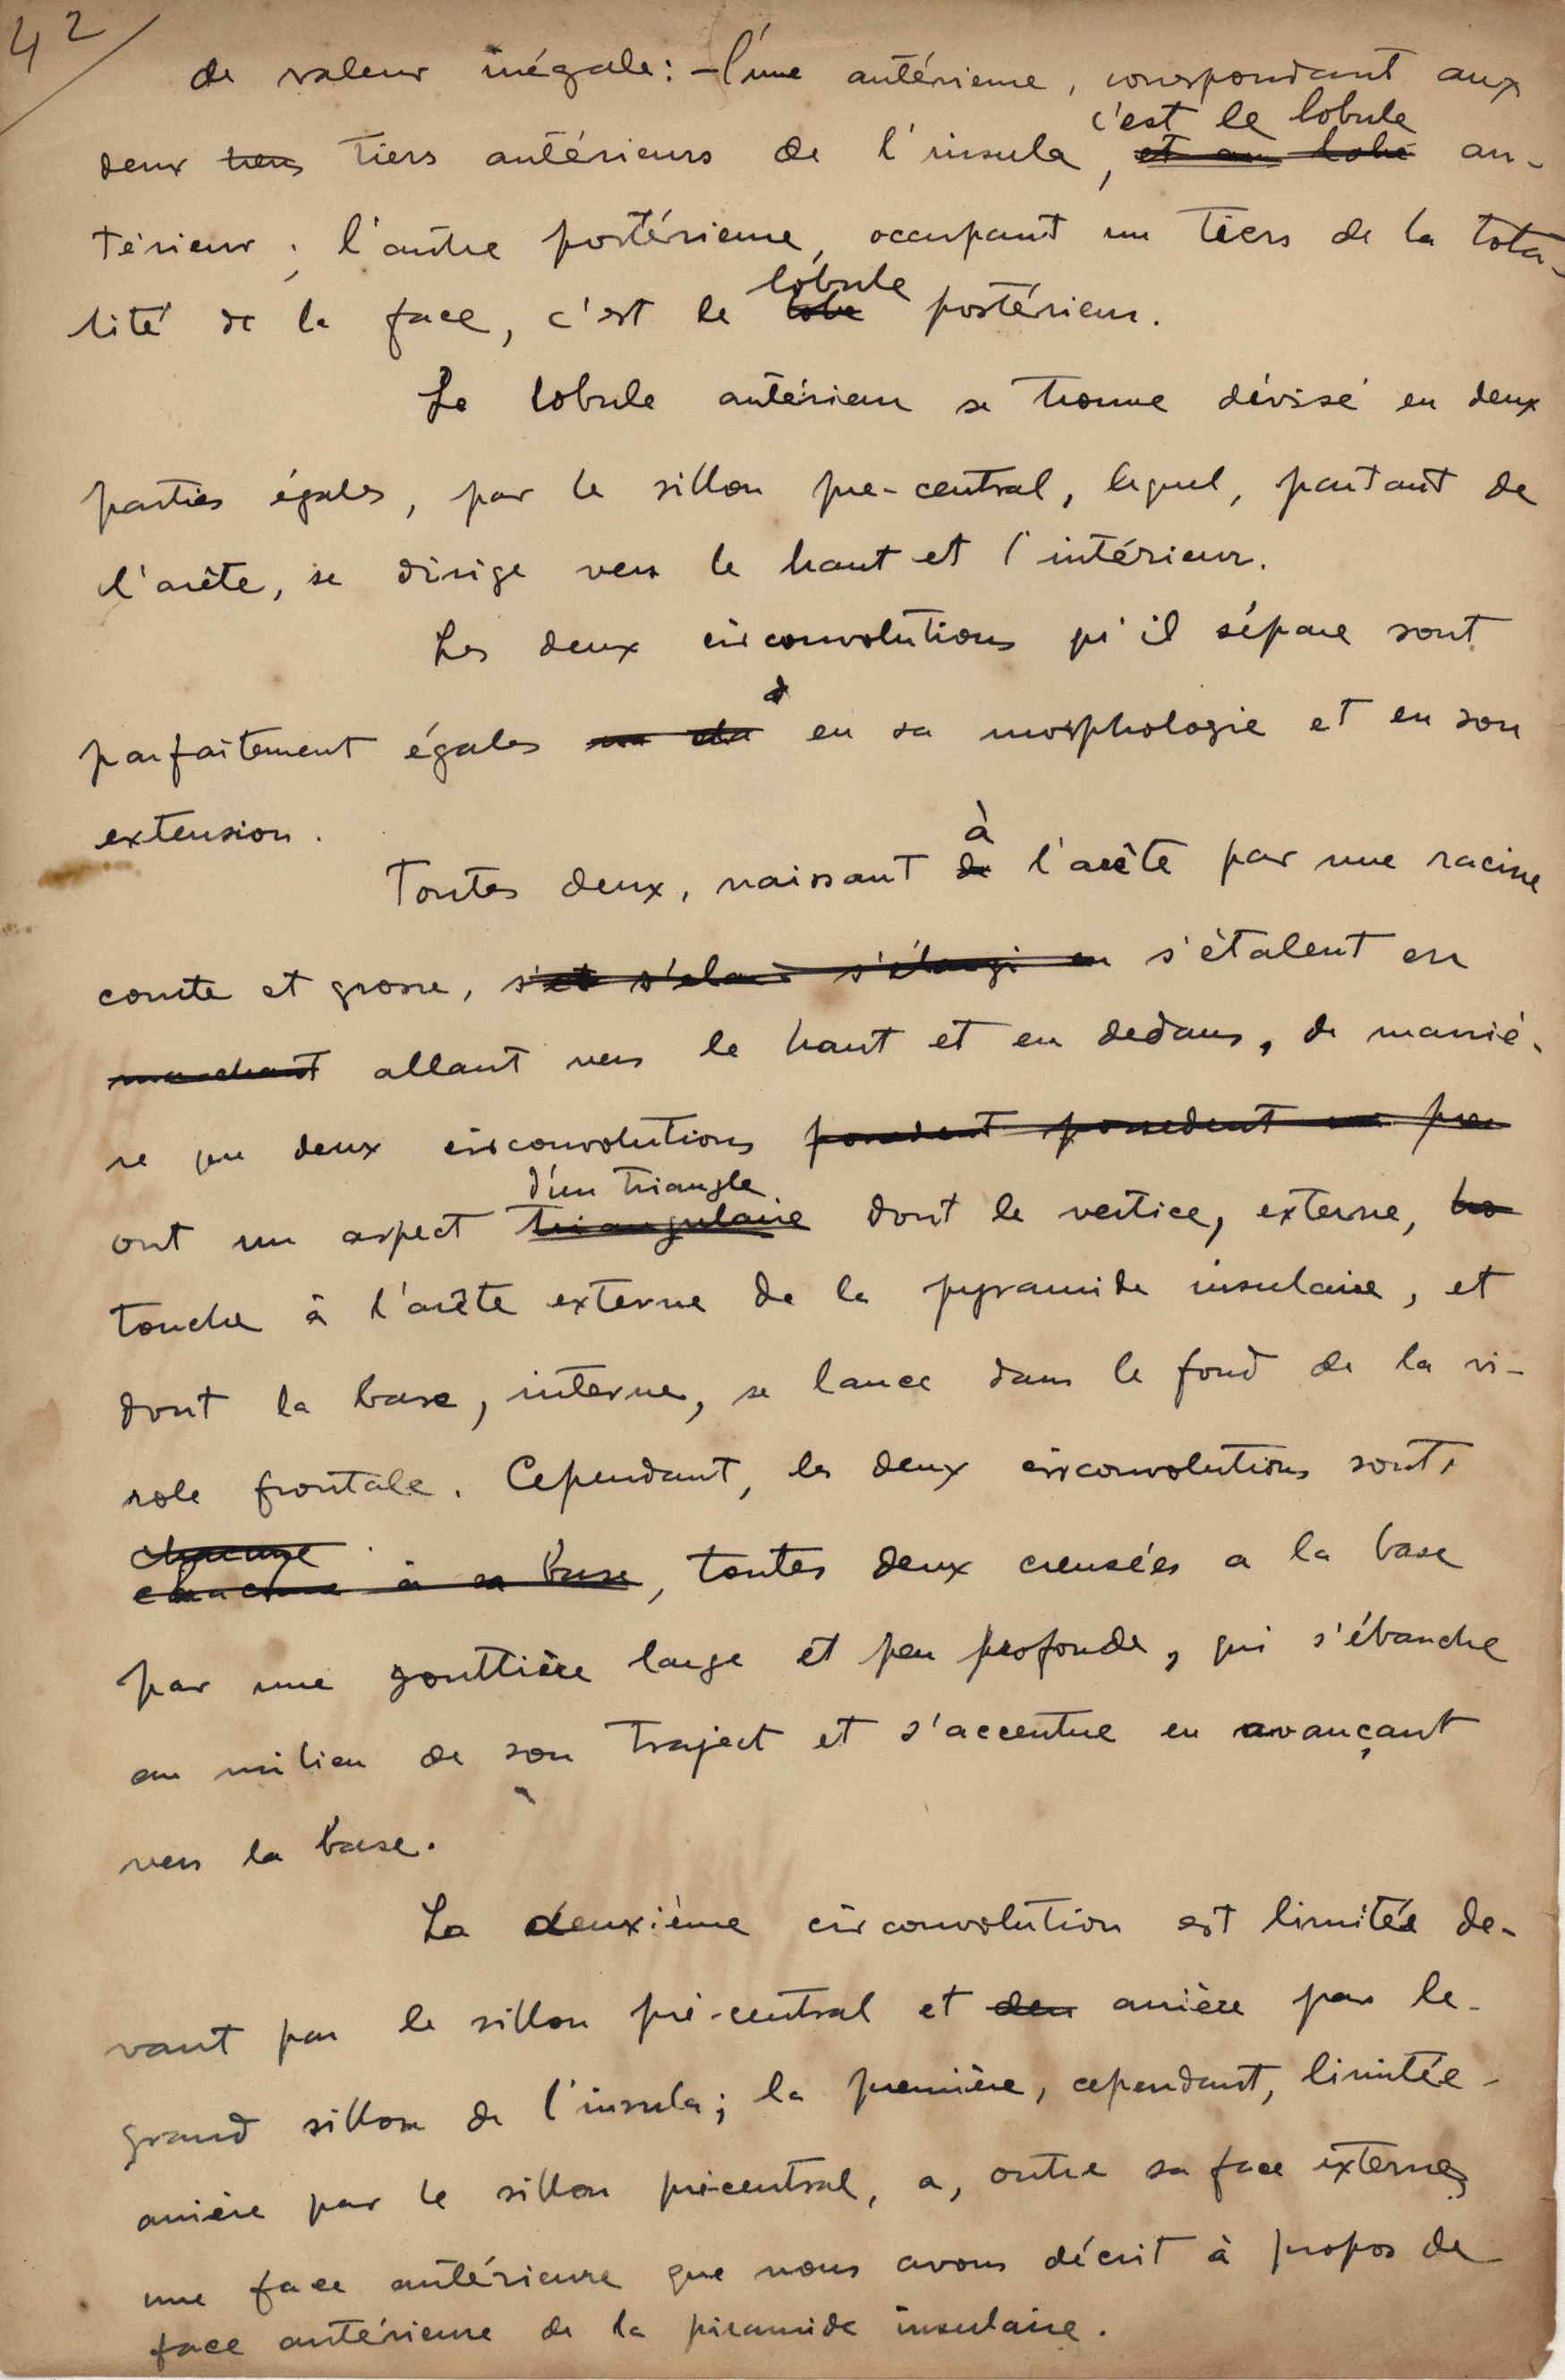 42
de valeur inégale: - l'une antérieure, correspondant aux
c'est le lobule
deux tiers tiers antérieurs de l'insula, et au lobe an-
térieur; l'autre postérieure, occupant un tiers de la tota-
lobule
lité de la face, c'est le lobe postérieur.
Le lobule antérieur se trouve dévisé en deux
parties égales, par le sillon pre-central, lequel, partant de
l'arête, se dirige vers le haut et l'intérieur.
Les deux circonvolutions qu'il sépare sont
parfaitement égales en sa morphologie et en son
extension.
à
Toutes deux, naissant de l'arête par une racine
courte et grosse, s'élargi en s'étalent en
marchant allant vers le haut et en dedans, de maniè-
re que deux circonvolutions possedent possedent une
d'un triangle
ont un aspect triangulaire dont le vertice, externe,
touche à l'arête externe de la pyramide insulaire, et
dont la base, interne, se lance dans le fond de la ri-
gole frontale. Cependant, les deux circonvolutions sont,
chacune
chacune à sa base, toutes deux creusées a la base
par une gouttière large et peu profonde, qui s'ébauche
au milieu de son traject et s'accentue en avançant
vers la base.
La deuxième circonvolution est limitée de-
vant par le sillon pré-central et arrière par le-
grand sillon de l'insula; la première, cependant, limitée-
arrière par le sillon pré-central, a, outre sa face externe,
une face antérieure que nous avons décrit à propos de
face antérieure de la piramide insulaire.